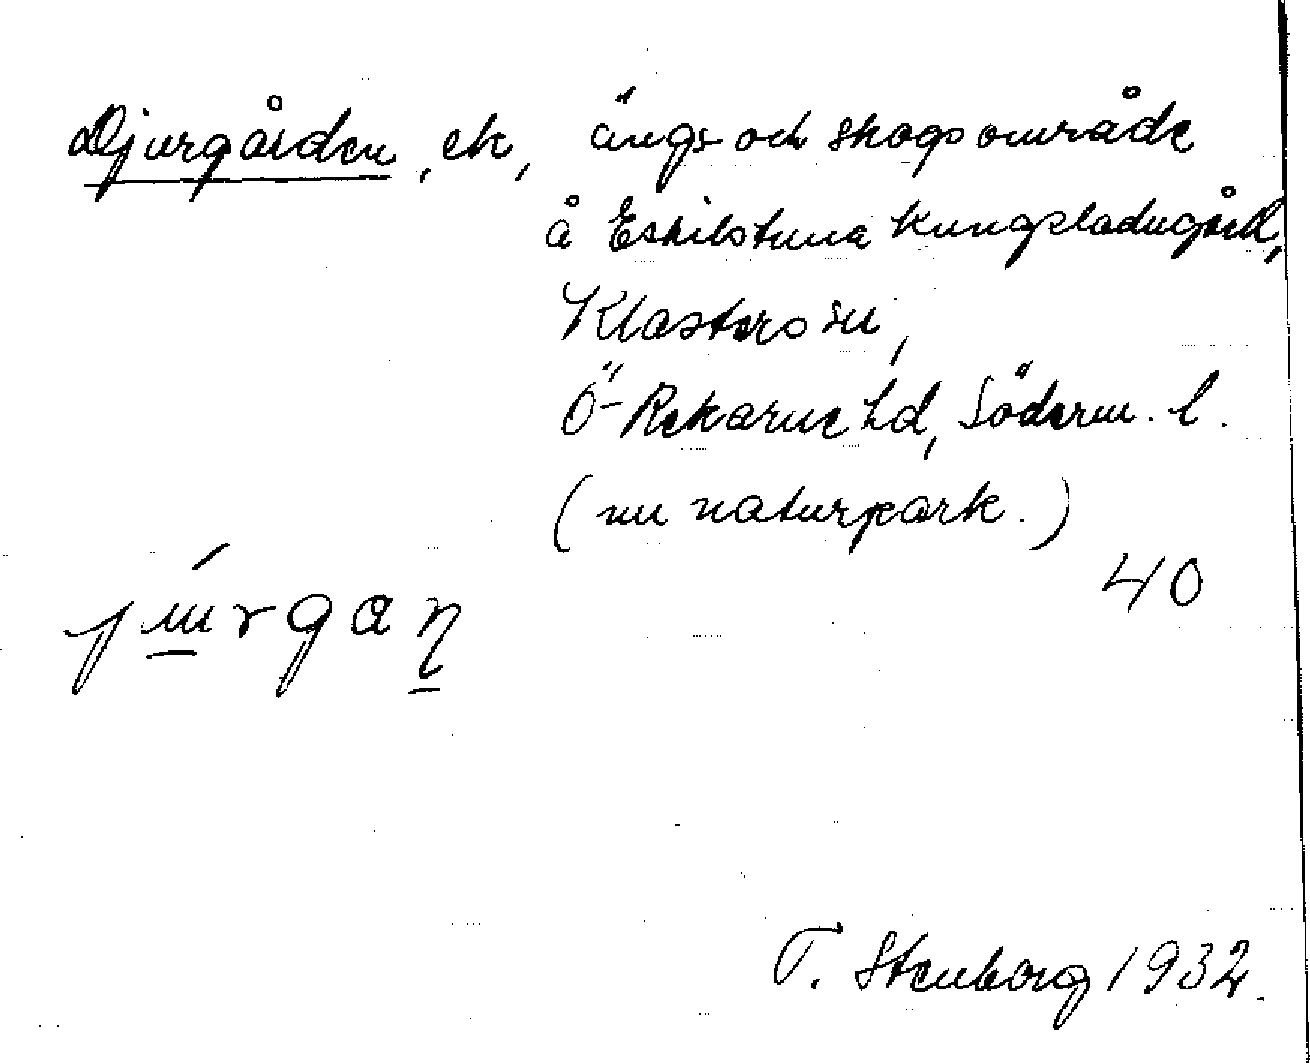 Djurgården, ek, ängs- och skogsområde
å Eskilstuna kungsladugård,
Klosters sn,
Ö-Rekarne hd, Söderm. l.
(nu naturpark.)
40
júrgaṇ
T. Stenborg 1932.